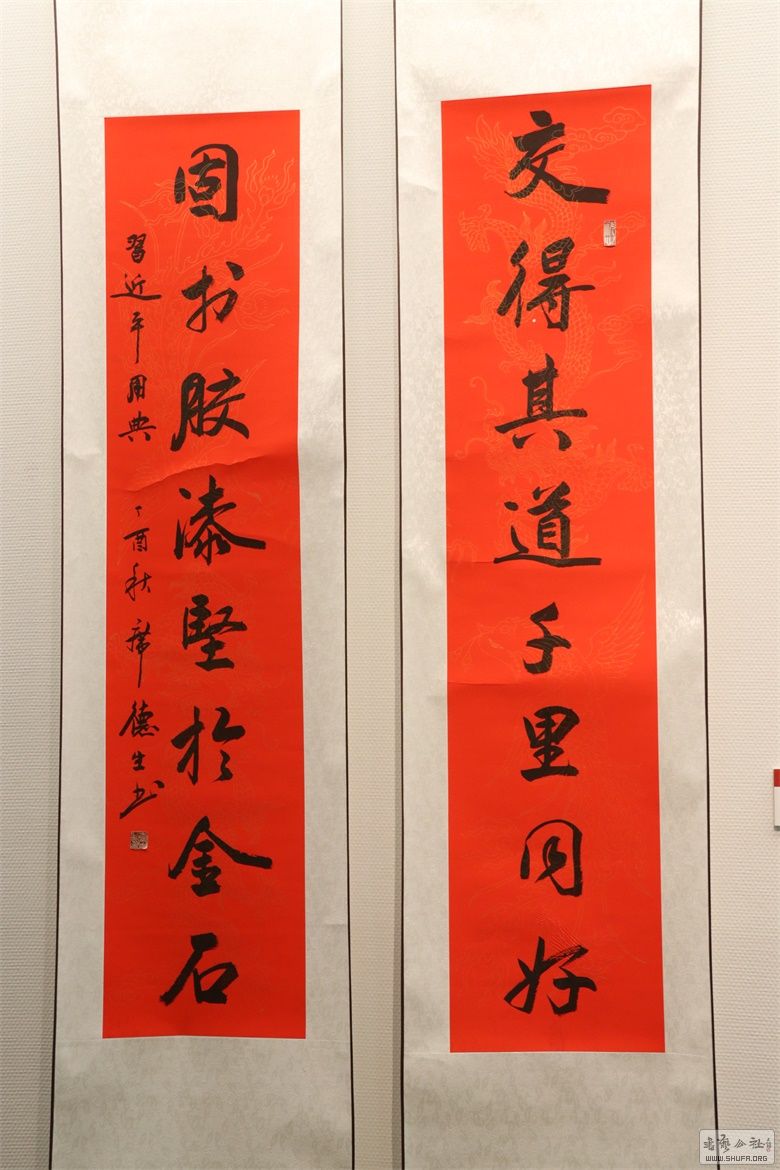 交得其道千里同好
固於胶漆堅於金石
習近平用典 丁酉秋 席德生书
书艺公社
WWW.SHUFA.ORG